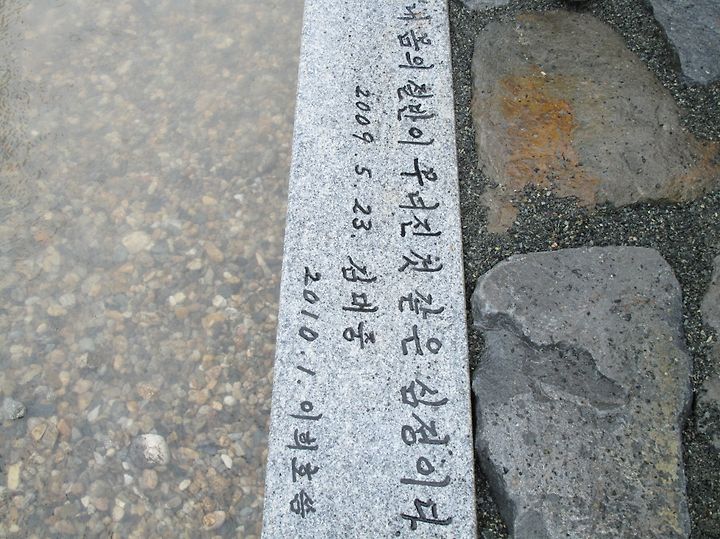 내 몸의 절반이 무너진 것 같은 심정이다.
2009 5. 23. 김대중
2010. 1. 이희호 씀